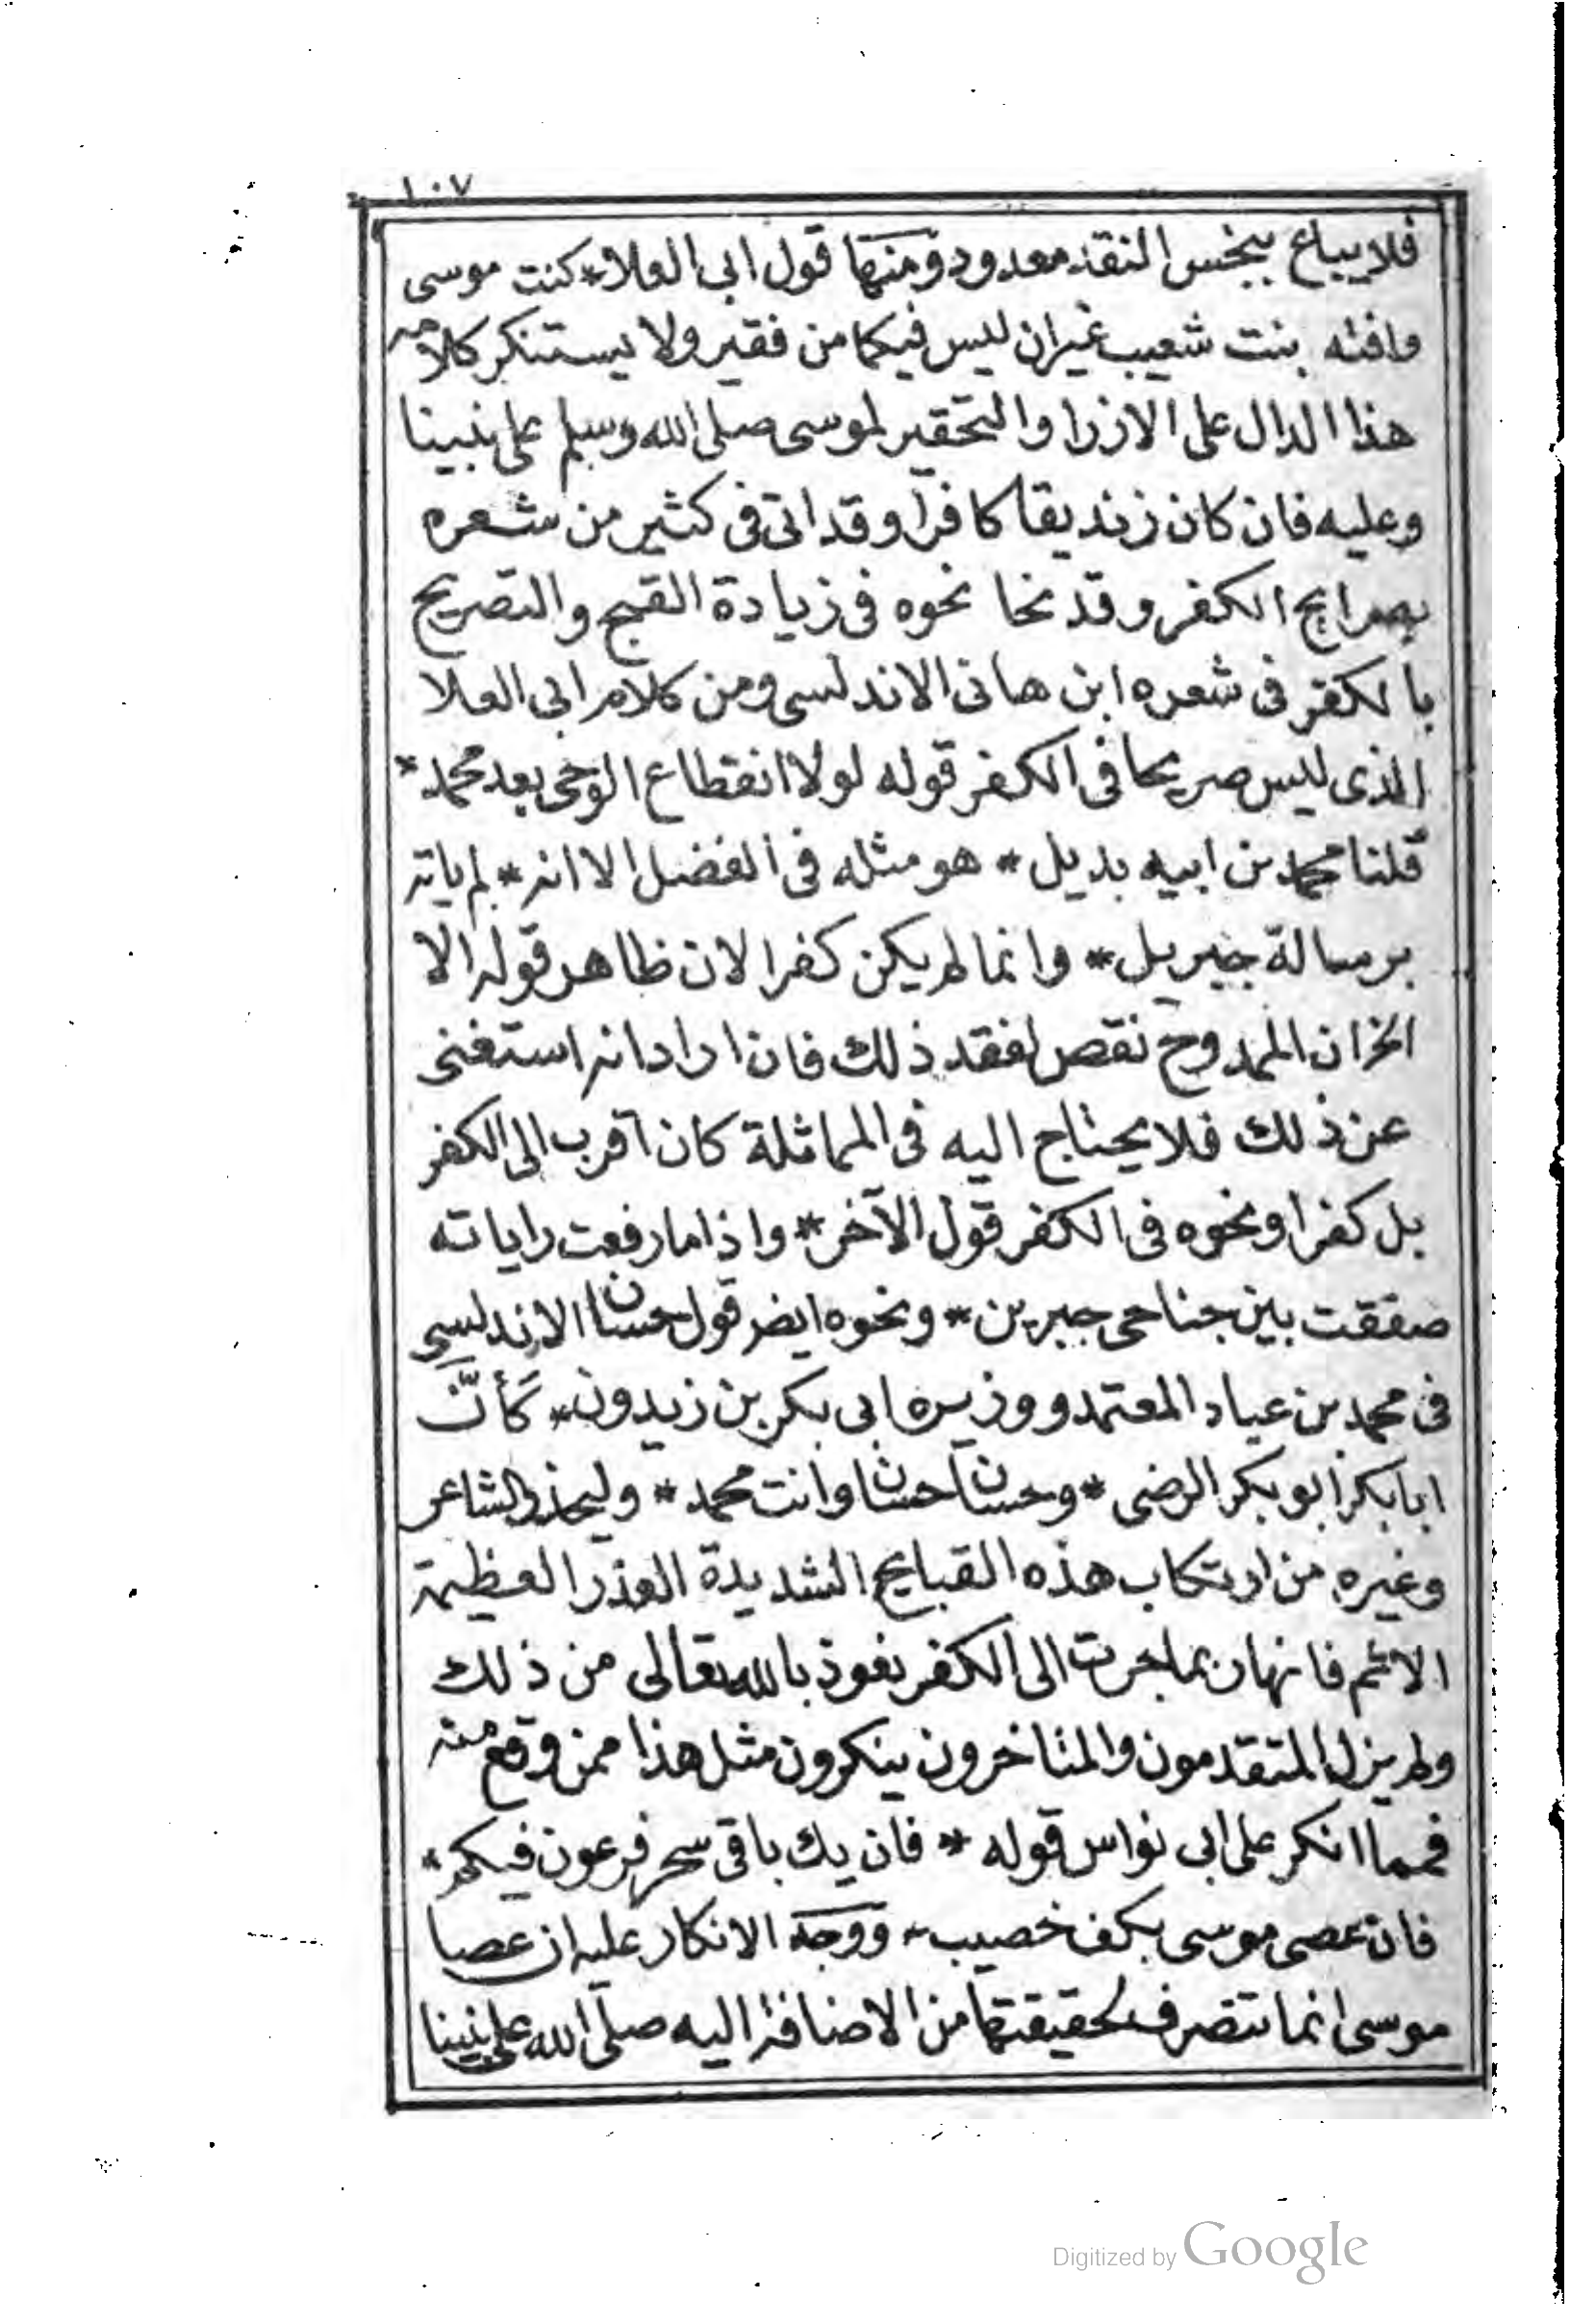 ١٠٧
فلا يباع ببخس النقد معدود ومنها قول ابى العلاء * كنت موسى
وافته بنت شعيب غيران ليس فيكما من فقير ولا يستنكر كلامه
هذا الدال على الازرا والتحقير لموسى صلى الله وسلم على نبينا
وعليه فان كان زنديقا كافرا وقد اتى فى كثير من شعره
بصرايح الكفر وقد نحا نحوه فى زيادة القبح والتصريح
بالكفر فى شعره ابن هانى الاندلسى ومن كلام ابى العلا
الذى ليس صريحا فى الكفر قوله لولا انقطاع الوحى بعد محمد *
قلنا محمد من ابيه بديل * هو مثله فى الفضل الا انه * لم ياته
برسالة جبريل * وانما لم يكن كفرا لان ظاهر قوله الا
الخ ان الممدوح نقص لفقد ذلك فان اراد انه استغنى
عن ذلك فلا يحتاج اليه فى المماثلة كان اقرب الى الكفر
بل كفرا ونحوه فى الكفر قول الآخر * واذا ما رفعت راياته
صفقت بين جناحى جبرين * ونحوه ايضر قول حسان الاندلسى
فى محمد بن عباد المعتمد ووزيره ابى بكر بن زيدون * كَأنَّ
ابا بكر ابو بكر الرضى * وحسان حسان وانت محمد * وليحذر الشاعر
وغيره من ارتكاب هذه القبايح الشديدة العذر العظيمة
الاثم فانها ربما جرت الى الكفر نعوذ بالله تعالى من ذلك
ولم يزل المتقدمون والمتاخرون ينكرون مثل هذا ممن وقع منه
فمما انكر على ابى نواس قوله * فان يك باقى سحر فرعون فيكم *
فان عصى موسى بكف خصيب * ووجه الانكار عليه ان عصا
موسى انما تتصرف لحقيقتها من الاضافة اليه صلى الله على نبينا
Digitized by Google